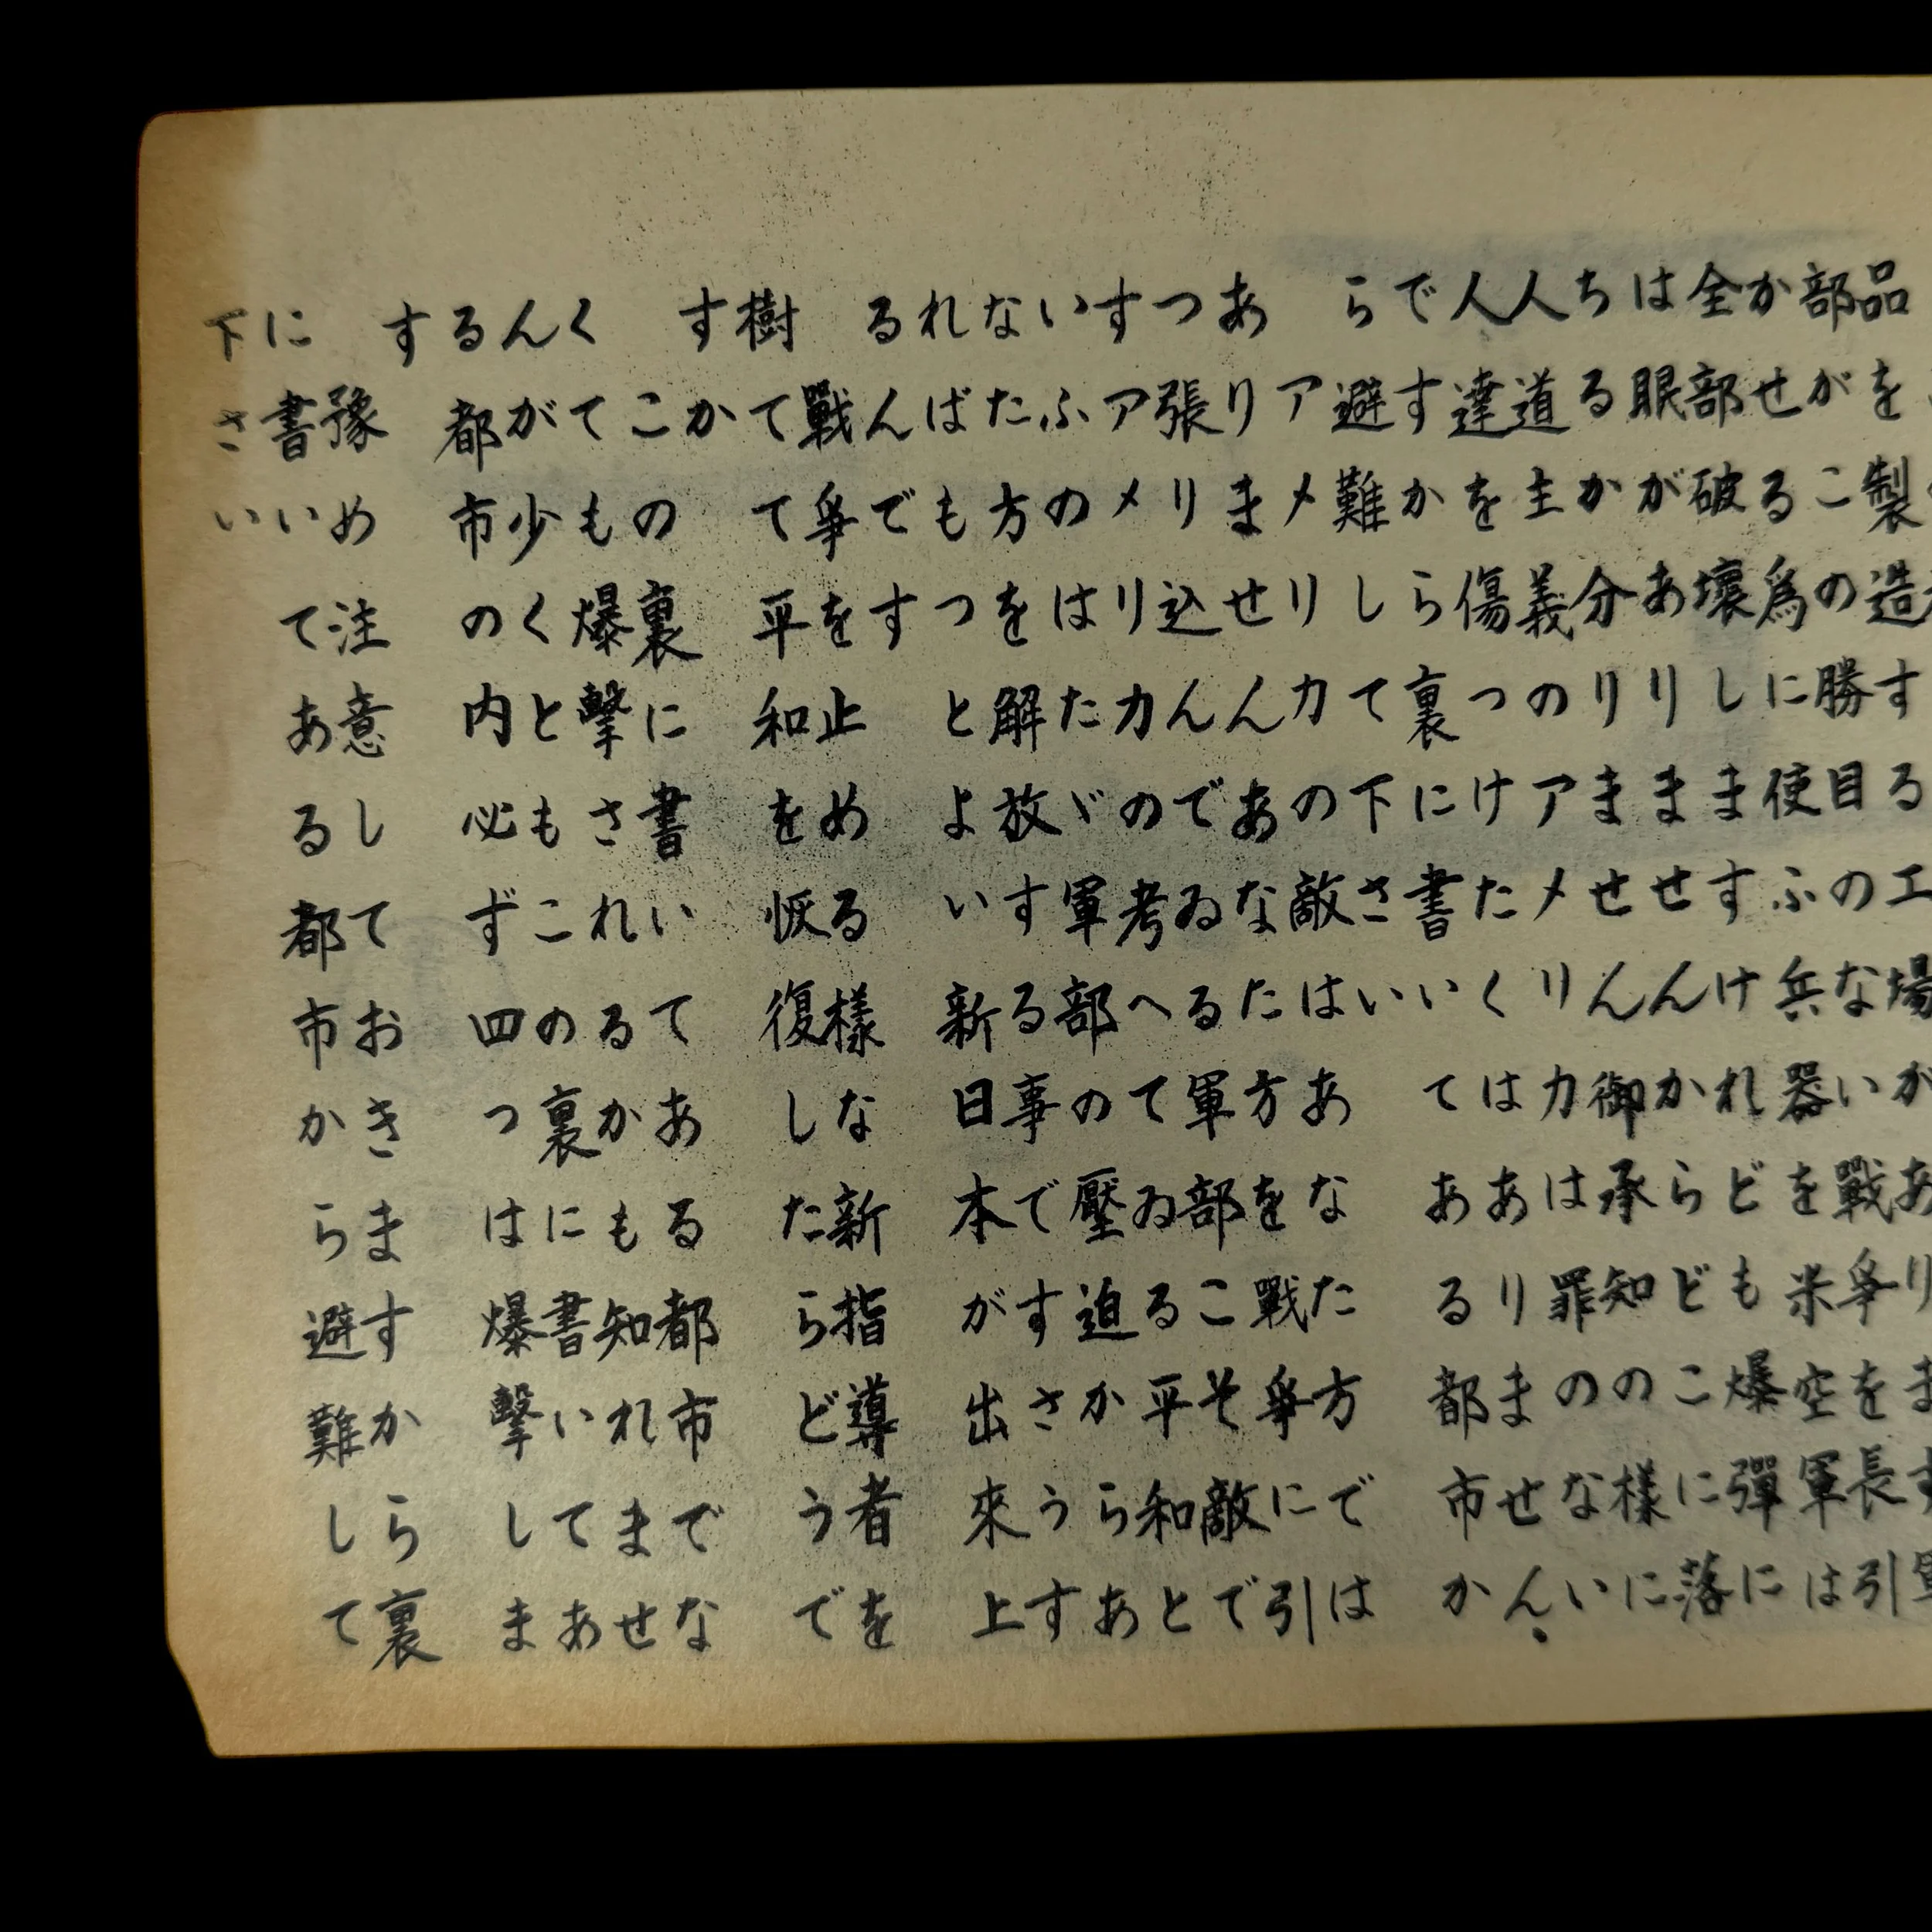 品を製造する工場があります軍
部がこの勝目のない戰爭を長引
かせる爲に使ふ兵器を米空軍は
全部破壞しますけれども爆彈に
は眼がありませんからどこに落
ちるか分りません御承知の樣に
人道主義のアメリカは罪のない
人達を傷つけたくはありません。
ですから裏に書いてある都市か
ら避難して下さい
アメリカの敵はあなた方では
ありませんあなた方を戰爭に引
つ張り込んでゐる軍部こそ敵で
すアメリカの考へてゐる平和と
いふのはたゞ軍部の壓迫からあ
なた方を解放する事ですさうす
ればもつとよい新日本が出來上
るんです
戰爭を止める樣な新指導者を
樹てて平和を恢復したらどうで
すか
この裏に書いてある都市でな
くても爆擊されるかも知れませ
んが少くともこの裏に書いてあ
る都市の内必ず四つは爆擊しま
す
豫め注意しておきますから裏
に書いてある都市から避難して
下さい